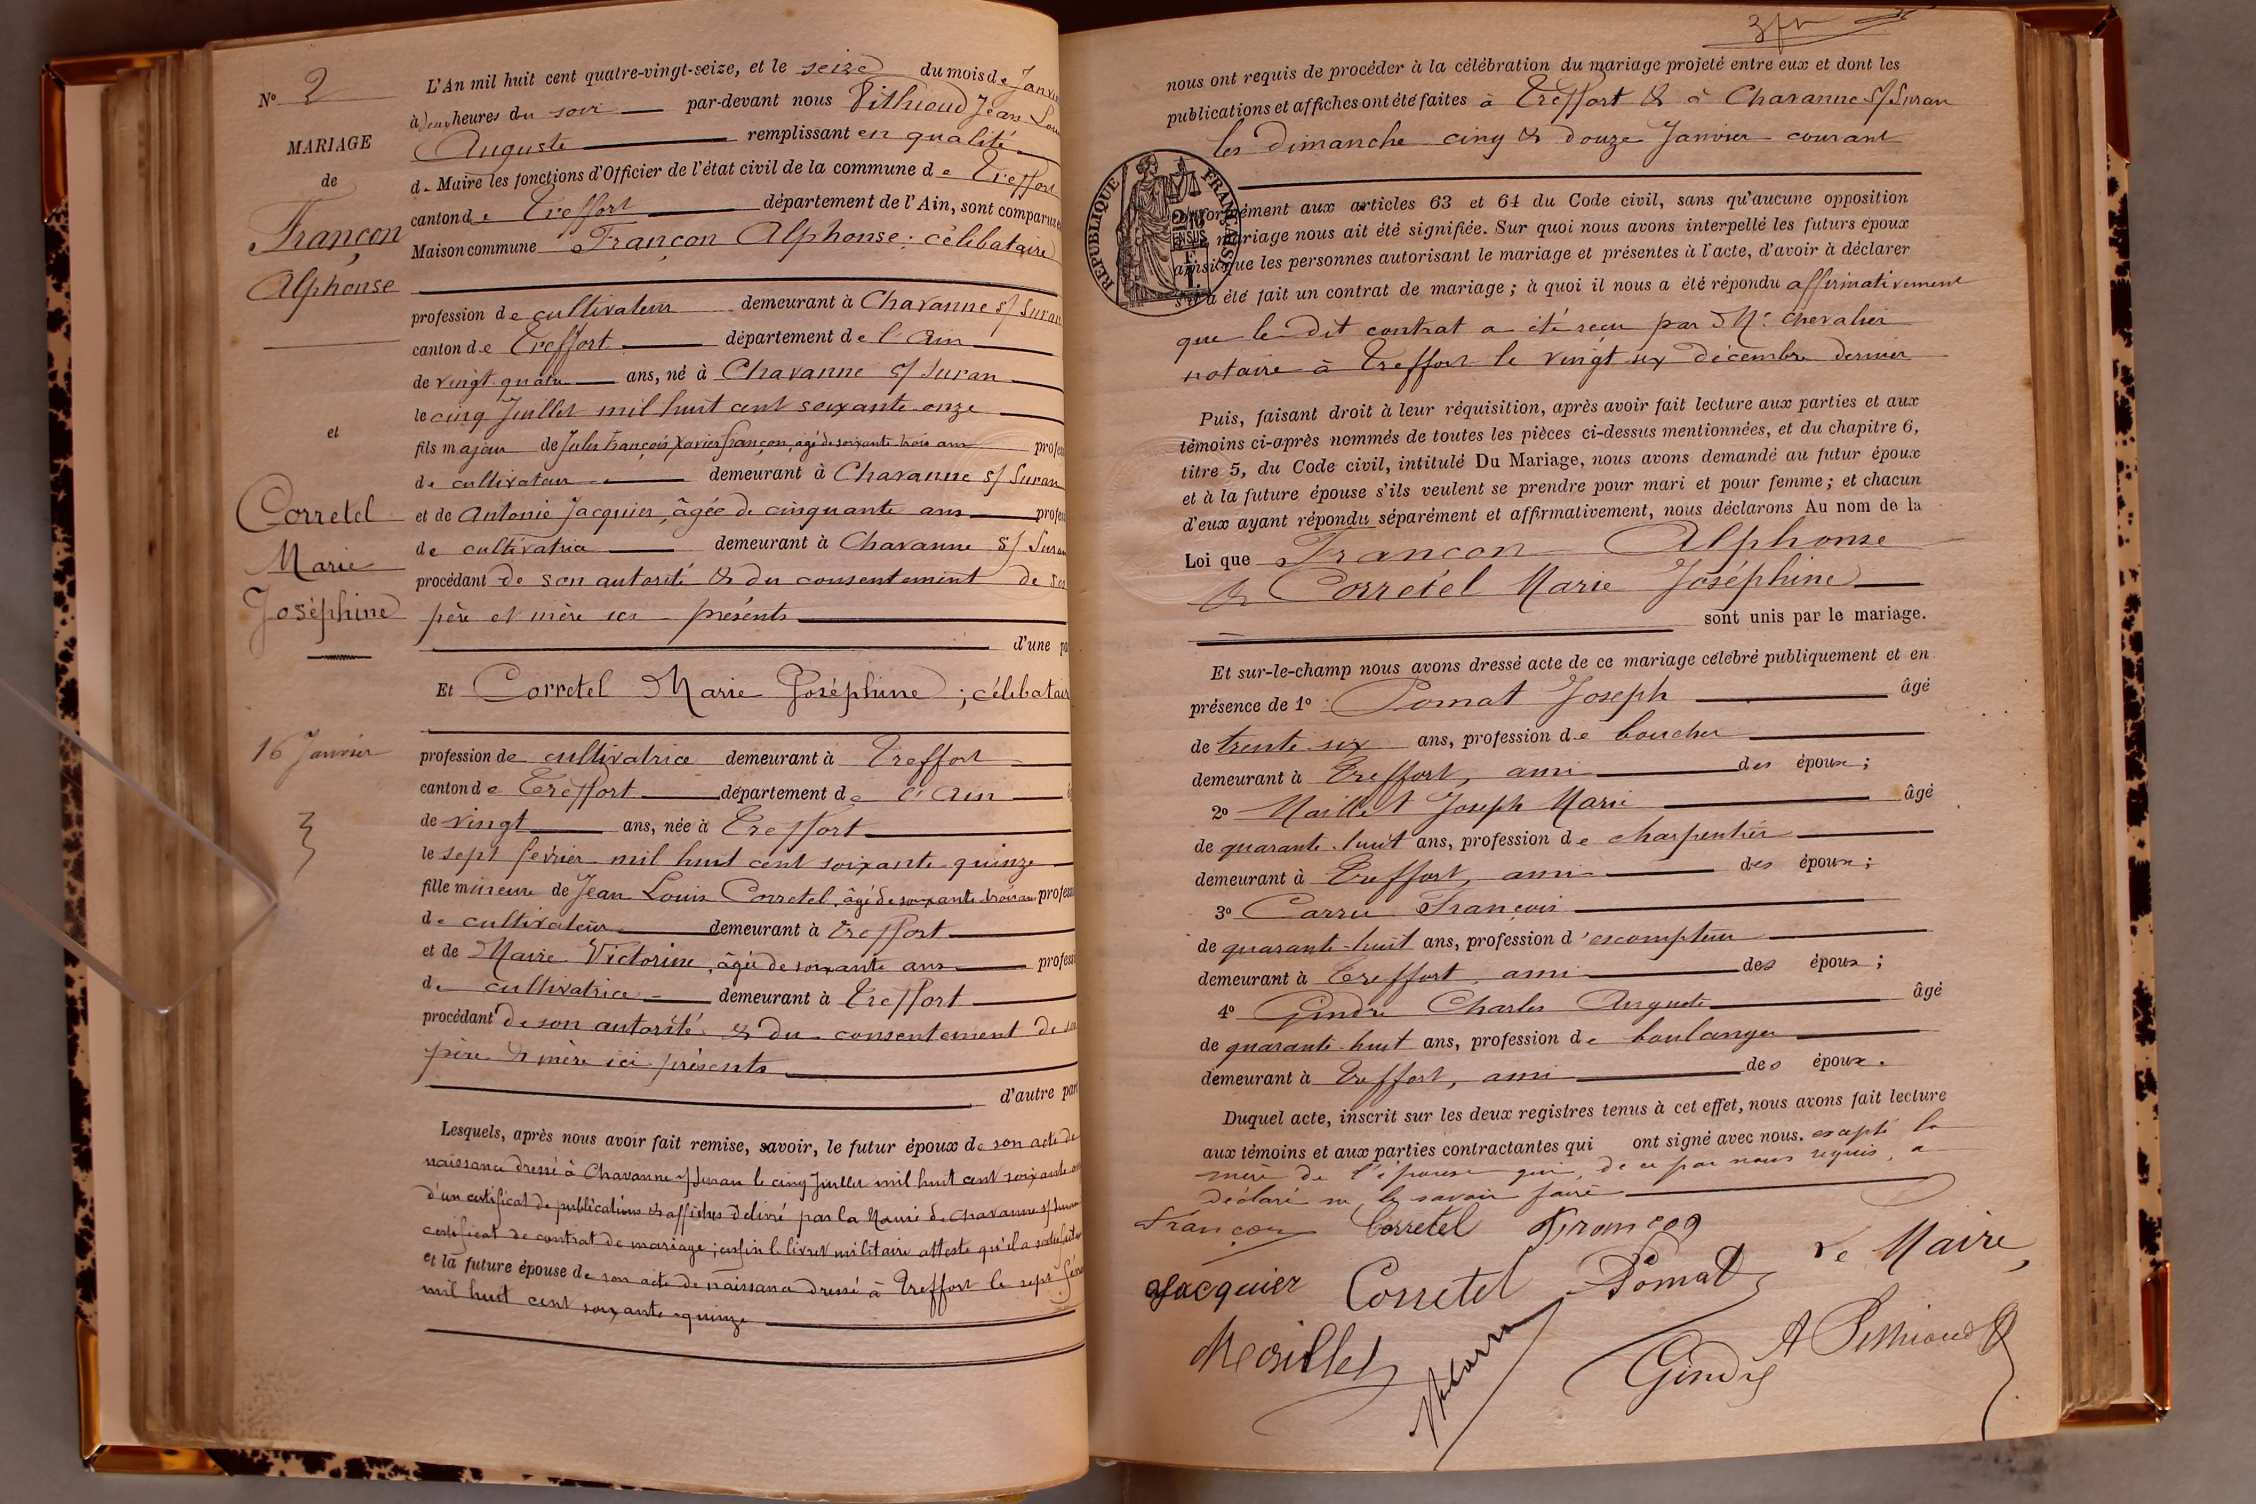 N° 2
MARIAGE
de
Françon
Alphonse
et
Corretel
Marie
Joséphine
16 Janvier
3
L'An mil huit cent quatre-vingt-seize, et le seize du mois de Janvier
à deux heures du soir par-devant nous Pithioud Jean Louis
Auguste remplissant en qualité
de Maire les fonctions d'Officier de l'état civil de la commune de Treffort
canton de Treffort département de l'Ain, sont comparus
Maison commune Françon Alphonse ; célibataire
profession de cultivateur demeurant à Chavanne s/ Suran
canton de Treffort département de l'Ain
de vingt quatre ans, né à Chavanne s/ Suran
le cinq Juillet mil huit cent soixante onze
fils majeur de Jules François Xavier Françon, âgé de soixante trois ans profes
de cultivateur demeurant à Chavanne s/ Suran
et de Antonie Jacquier, âgée de cinquante ans profes
de cultivatrice demeurant à Chavanne s/ Suran
procédant de son autorité & du consentement de ses
père et mère ici présents
d'une pa
Et Corretel Marie Joséphine ; célibataire
profession de cultivatrice demeurant à Treffort
canton de Treffort département de l'Ain
de vingt ans, née à Treffort
le sept février mil huit cent soixante quinze
fille mineure de Jean Louis Corretel, âgé de soixante trois ans profess
de cultivateur demeurant à Treffort
et de Marie Victorine, âgée de soixante ans profess
de cultivatrice demeurant à Treffort
procédant de son autorité & du consentement de ses
père & mère ici présents
d'autre part
Lesquels, après nous avoir fait remise, savoir, le futur époux de son acte de
naissance dressé à Chavanne s/ Suran le cinq Juillet mil huit cent soixante onze
d'un certificat de publications & affiches délivré par la Mairie de Chavanne s/ Suran
certificat de contrat de mariage ; enfin le livret militaire atteste qu'il a satisfait
et la future épouse de son acte de naissance dressé à Treffort le sept février
mil huit cent soixante-quinze
nous ont requis de procéder à la célébration du mariage projeté entre eux et dont les
publications et affiches ont été faites à Treffort & à Chavanne s/ Suran
les dimanche cinq & douze Janvier courant
RÉPUBLIQUE FRANÇAISE
conformément aux articles 63 et 64 du Code civil, sans qu'aucune opposition
mariage nous ait été signifiée. Sur quoi nous avons interpellé les futurs époux
ainsi que les personnes autorisant le mariage et présentes à l'acte, d'avoir à déclarer
s'il a été fait un contrat de mariage ; à quoi il nous a été répondu affirmativement
que le dit contrat a été reçu par Me Chevalier
notaire à Treffort le vingt six décembre dernier
Puis, faisant droit à leur réquisition, après avoir fait lecture aux parties et aux
témoins ci-après nommés de toutes les pièces ci-dessus mentionnées, et du chapitre 6,
titre 5, du Code civil, intitulé Du Mariage, nous avons demandé au futur époux
et à la future épouse s'ils veulent se prendre pour mari et pour femme ; et chacun
d'eux ayant répondu séparément et affirmativement, nous déclarons Au nom de la
Loi que Françon Alphonse
& Corretel Marie Joséphine
sont unis par le mariage.
Et sur-le-champ nous avons dressé acte de ce mariage célébré publiquement et en
présence de 1° Pomat Joseph âgé
de trente six ans, profession de boucher
demeurant à Treffort, ami des époux ;
2° Maillet Joseph Marie âgé
de quarante huit ans, profession de charpentier
demeurant à Treffort, ami des époux ;
3° Carru François
de quarante-huit ans, profession d'escompteur
demeurant à Treffort, ami des époux ;
4° Gindre Charles Auguste âgé
de quarante huit ans, profession de boulanger
demeurant à Treffort, ami des époux.
Duquel acte, inscrit sur les deux registres tenus à cet effet, nous avons fait lecture
aux témoins et aux parties contractantes qui ont signé avec nous. excepté la
mère de l'épouse qui, de ce par nous requis, a
déclaré ne le savoir faire
Françon Corretel Françon
Jacquier Corretel Pomat Le Maire,
Maillet Gindre A Pithioud